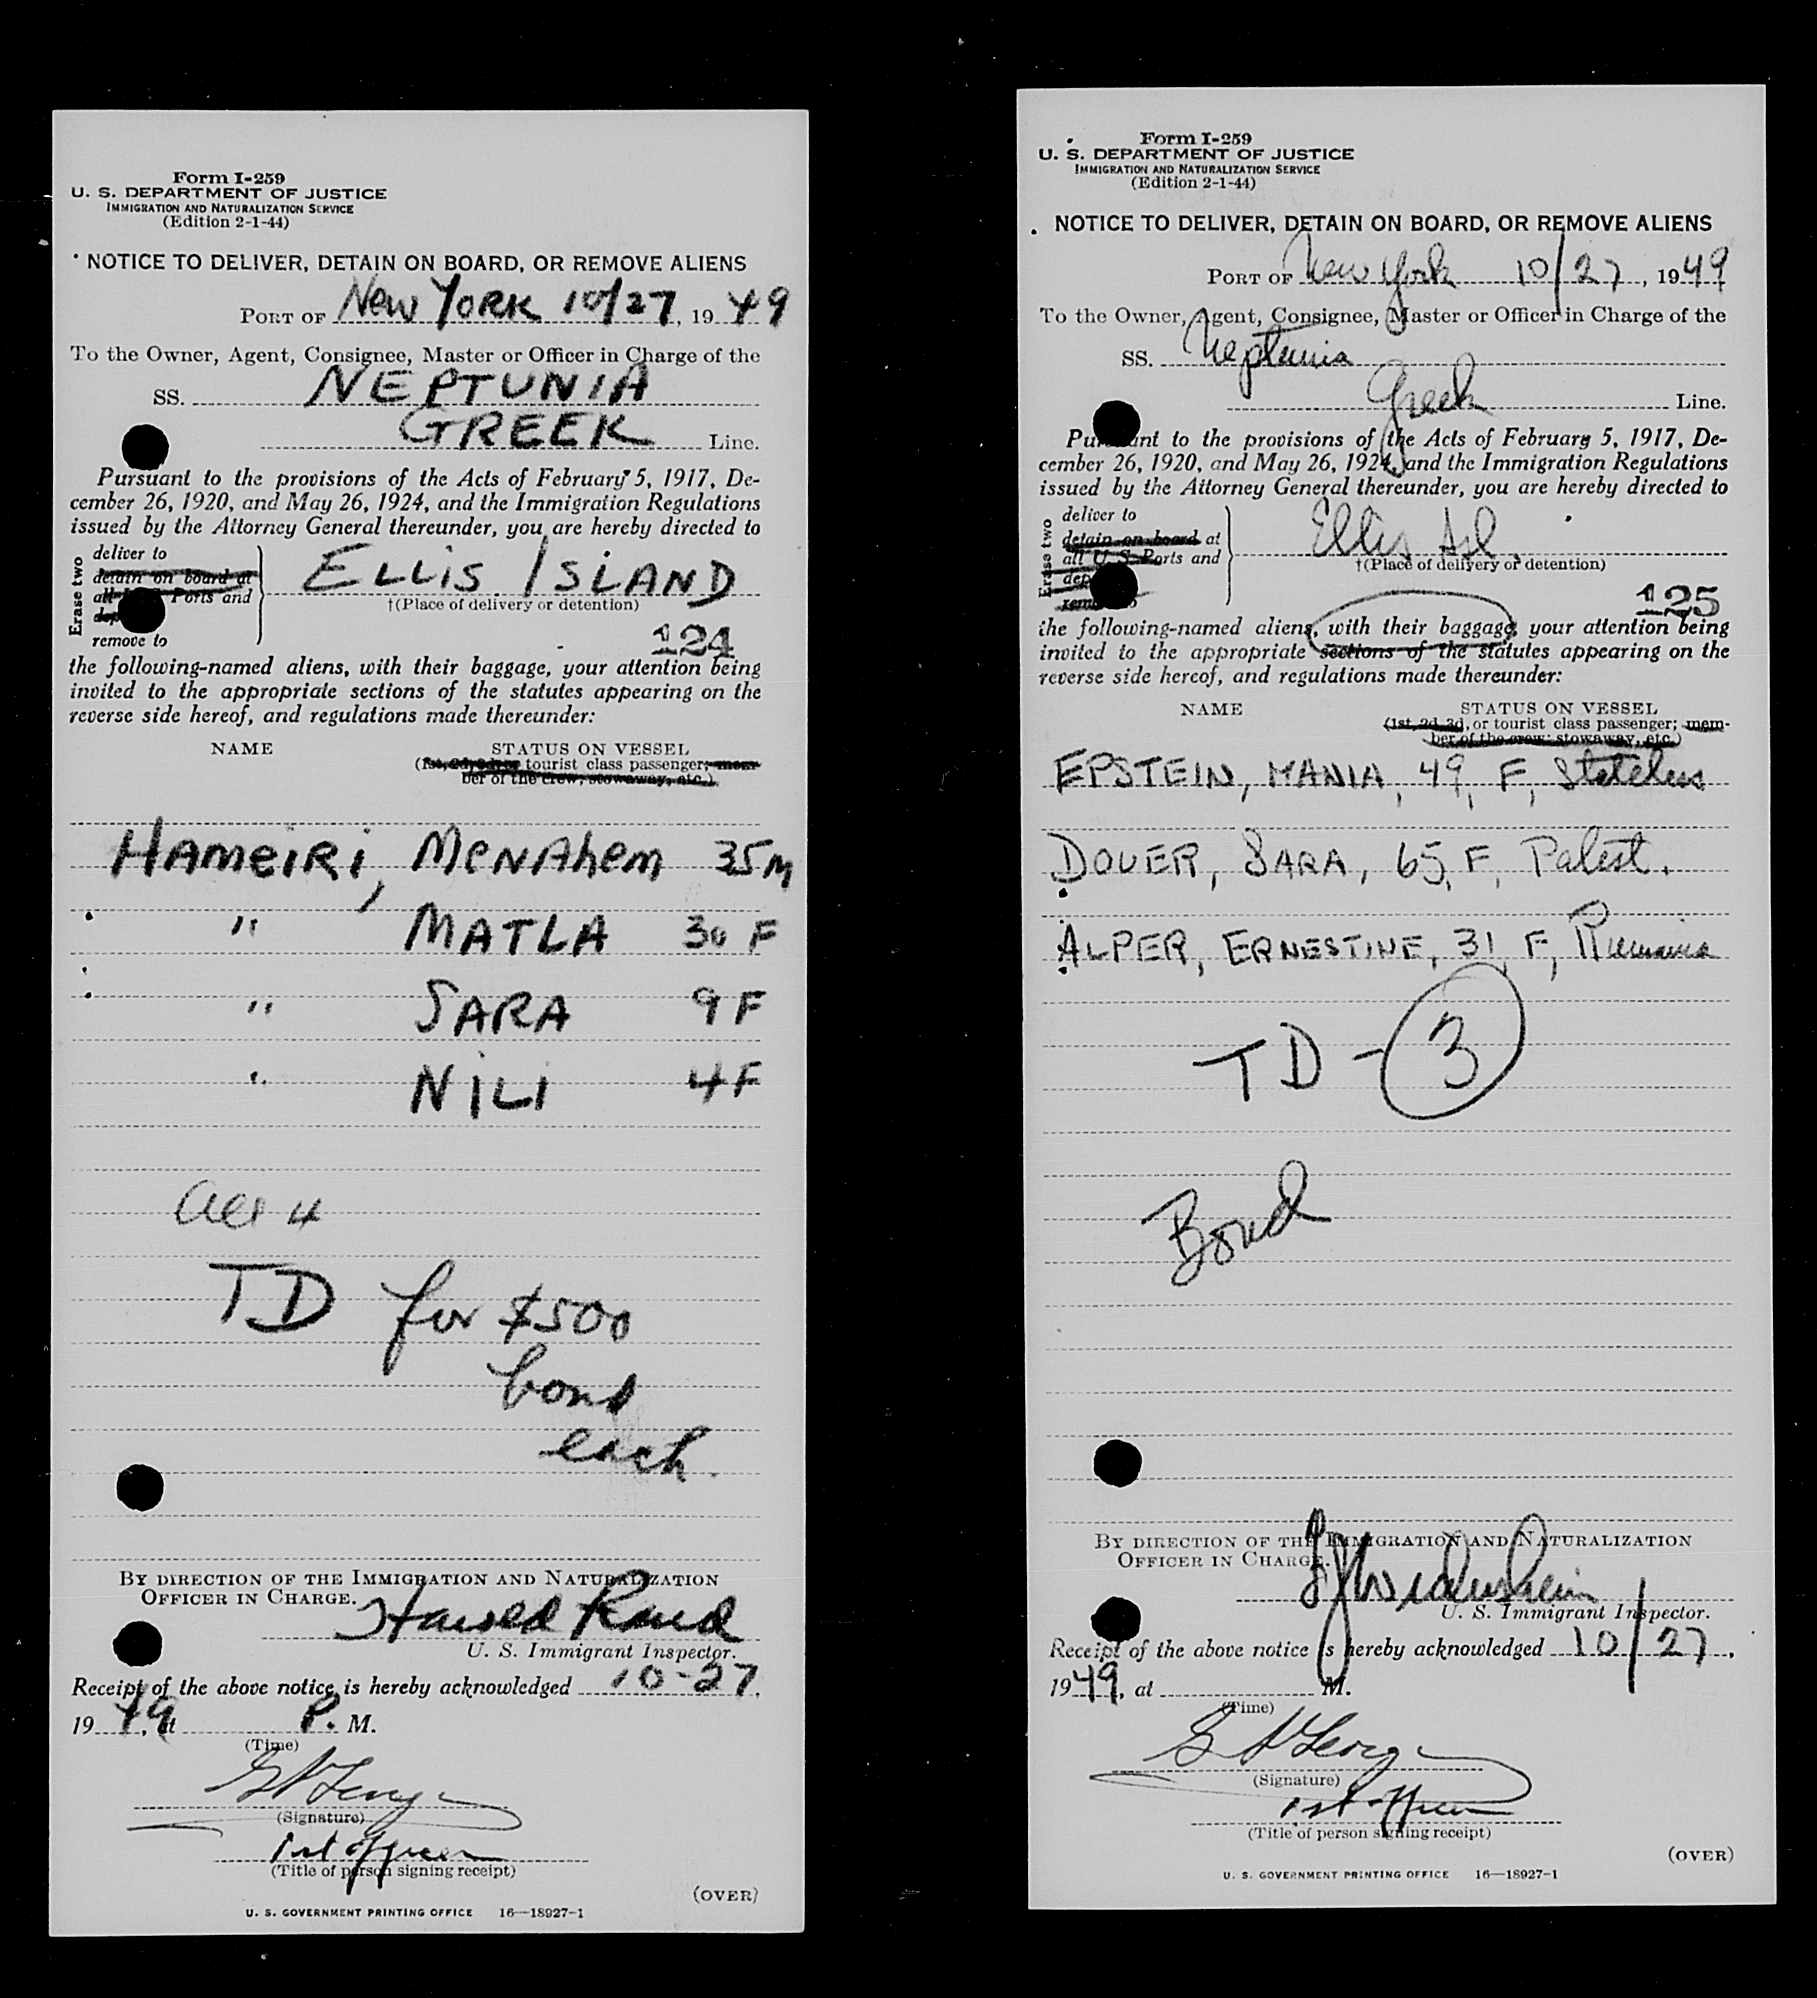 Form I-259
U. S. DEPARTMENT OF JUSTICE
IMMIGRATION AND NATURALIZATION SERVICE
(Edition 2-1-44)
NOTICE TO DELIVER, DETAIN ON BOARD, OR REMOVE ALIENS
PORT OF New YORK 10/27, 1949
To the Owner, Agent, Consignee, Master or Officer in Charge of the
SS. NEPTUNIA
GREEK Line.
Pursuant to the provisions of the Acts of February 5, 1917, De-
cember 26, 1920, and May 26, 1924, and the Immigration Regulations
issued by the Attorney General thereunder, you are hereby directed to
Erase two
deliver to
detain on board at
all Ports and
remove to
ELLIS ISLAND
†(Place of delivery or detention)
124
the following-named aliens, with their baggage, your attention being
invited to the appropriate sections of the statutes appearing on the
reverse side hereof, and regulations made thereunder:
NAME STATUS ON VESSEL
(1st, 2d, 3d, or tourist class passenger; mem-
ber of the crew; stowaway, etc.)
HAMEIRI, MENAHEM 35 M
" MATLA 30 F
" SARA 9 F
" NILI 4 F
All 4
TD for $500
bond
each.
BY DIRECTION OF THE IMMIGRATION AND NATURALIZATION
OFFICER IN CHARGE.
U. S. Immigrant Inspector.
Receipt of the above notice is hereby acknowledged 10-27,
1949, at P. M.
(Time)
(Signature)
1st officer
(Title of person signing receipt)
(OVER)
U. S. GOVERNMENT PRINTING OFFICE 16—18927-1
Form I-259
U. S. DEPARTMENT OF JUSTICE
IMMIGRATION AND NATURALIZATION SERVICE
(Edition 2-1-44)
NOTICE TO DELIVER, DETAIN ON BOARD, OR REMOVE ALIENS
PORT OF New York 10/27, 1949
To the Owner, Agent, Consignee, Master or Officer in Charge of the
SS. Neptunia
Greek Line.
Pursuant to the provisions of the Acts of February 5, 1917, De-
cember 26, 1920, and May 26, 1924, and the Immigration Regulations
issued by the Attorney General thereunder, you are hereby directed to
Erase two
deliver to
detain on board at
all U. S. Ports and
remove to
Ellis Isl.
†(Place of delivery or detention)
125
the following-named aliens, with their baggage, your attention being
invited to the appropriate sections of the statutes appearing on the
reverse side hereof, and regulations made thereunder:
NAME STATUS ON VESSEL
(1st, 2d, 3d, or tourist class passenger; mem-
ber of the crew; stowaway, etc.)
EPSTEIN, MANIA, 49, F, Stateless
DOUER, SARA, 65, F, Palest.
ALPER, ERNESTINE, 31, F, Rumania
TD - 3
Bond
BY DIRECTION OF THE IMMIGRATION AND NATURALIZATION
OFFICER IN CHARGE.
U. S. Immigrant Inspector.
Receipt of the above notice is hereby acknowledged 10/27,
1949, at M.
(Time)
(Signature)
1st officer
(Title of person signing receipt)
(OVER)
U. S. GOVERNMENT PRINTING OFFICE 16—18927-1